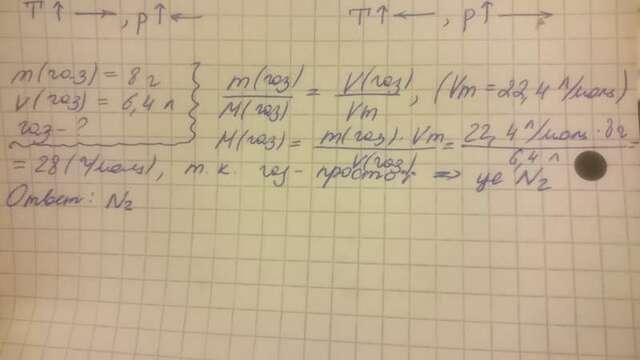 T↑ → , p↑ ← T↑ ← , p↑ →
m(газ) = 8 г
V(газ) = 6,4 л
газ - ?
m(газ)/M(газ) = V(газ)/Vm , (Vm = 22,4 л/моль)
M(газ) = m(газ)·Vm/V(газ) = 22,4 л/моль · 8г/6,4 л =
= 28 (г/моль), т.к. газ - простой => це N2
Ответ: N2